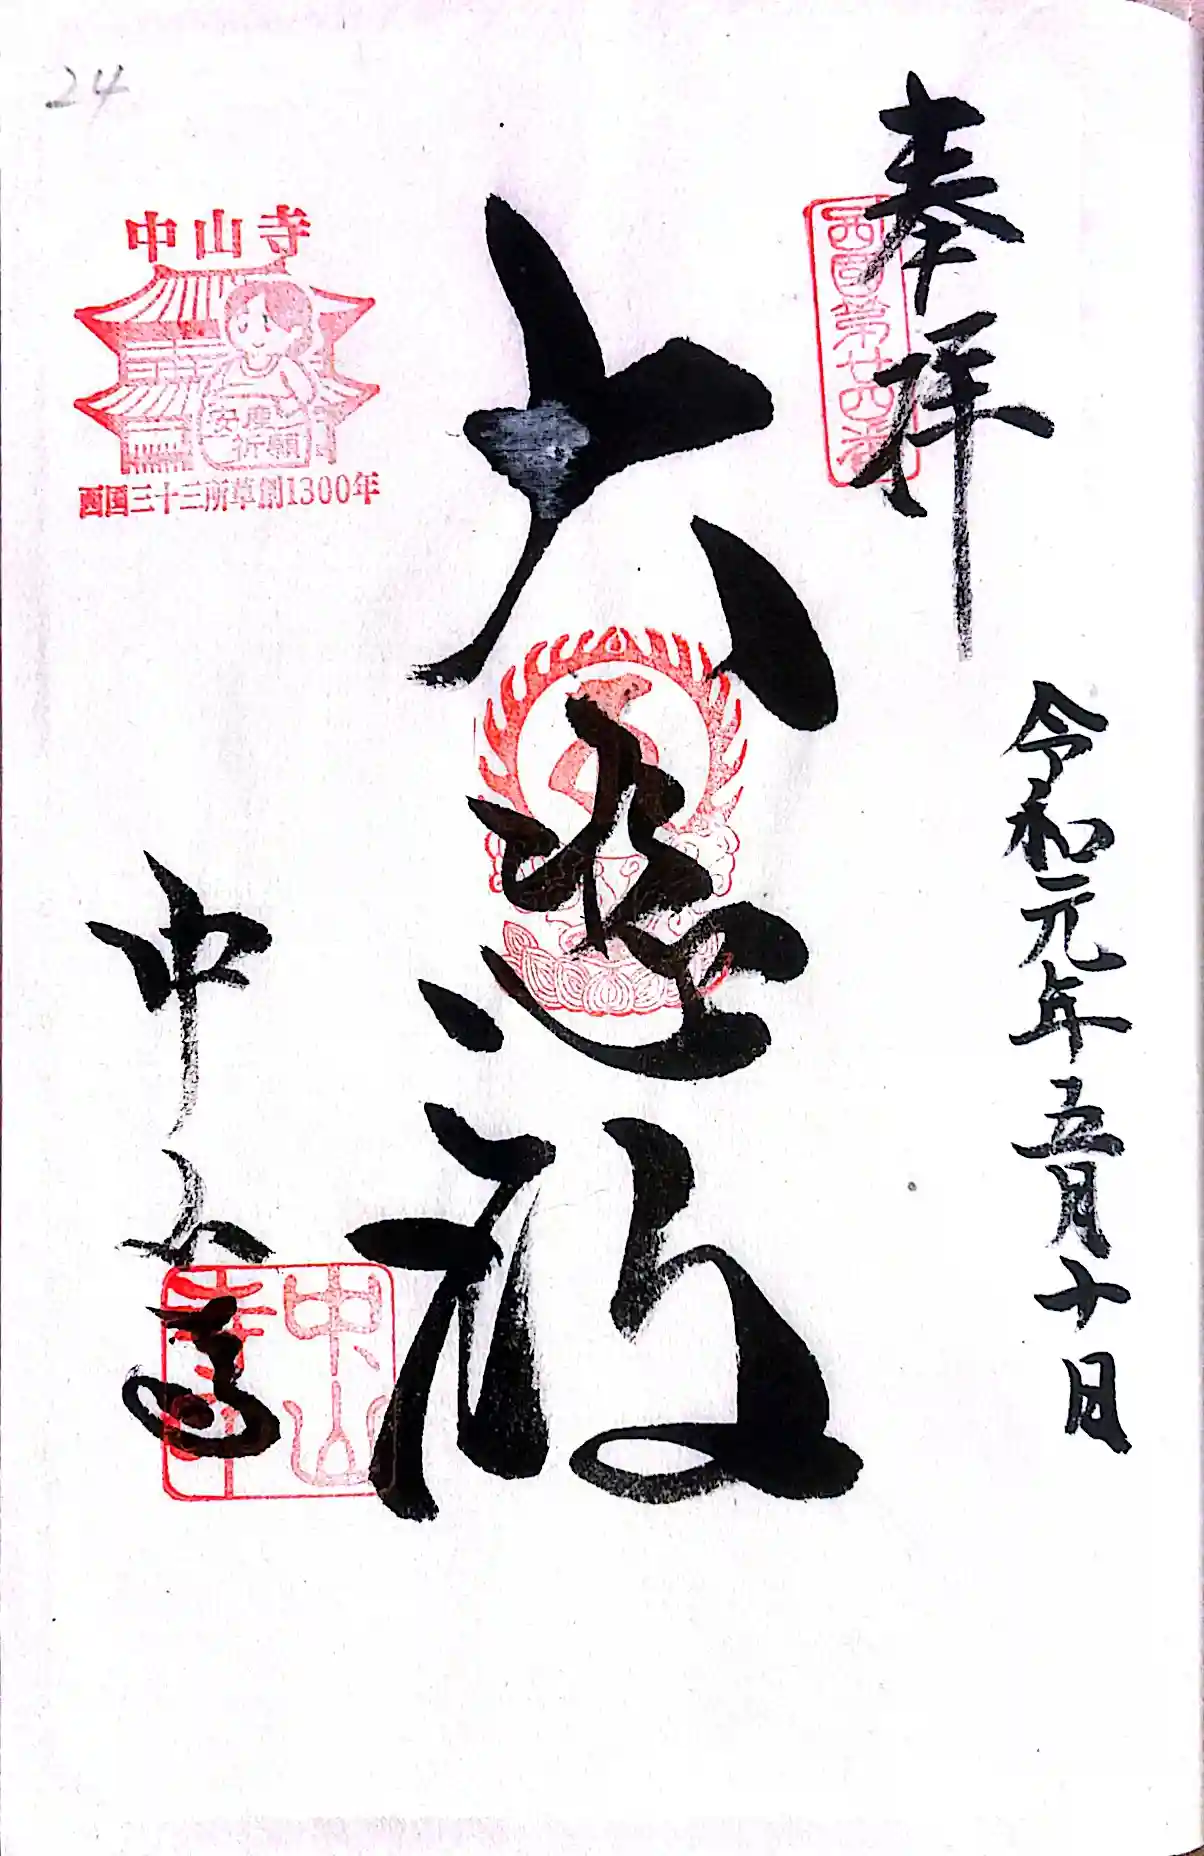 奉拝
西国第廿四番
令和元年五月十日
大悲殿
中山寺
中山寺
24
中山寺
安産祈願
西国三十三所草創1300年